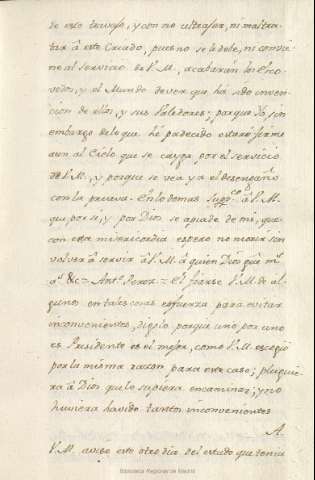 de esto travajo, y con no ultrajar, ni maltra-
tar á este Criado, pues no se le debe, ni convie-
ne al servicio de V.M., acabarán los Eno
y el Mundo de ver que há sido inven-
cion de ellos, y sus Valedores; porque Yo, sin
embargo de lo que hé padecido estaré firme
aun al Cielo que se cayga por el servicio
de V.M., y porque se vea ya el desengaño
con la prueva. En lo demas Supp.co á V.M.
que por si, y por Dios se apiade de mi, que
con esta misericordia espero no morir sin
volver á servir á V.M. á quien Dios gde. m.s
a.s &c.= Ant.o Perez = El fiarse V.M. de al-
gunos en tales cosas es fuerza para evitar
inconvenientes, digolo, porque uno, por uno
es Presidente es el mejor, como V.M. escogió
por la misma razon para este caso; pluguie-
ra á Dios que lo supiera encaminar, y no
huviera havido tantos inconvenientes
A.
V.M. aviso esto otro dia del estado que tenia
Biblioteca Regional de Madrid